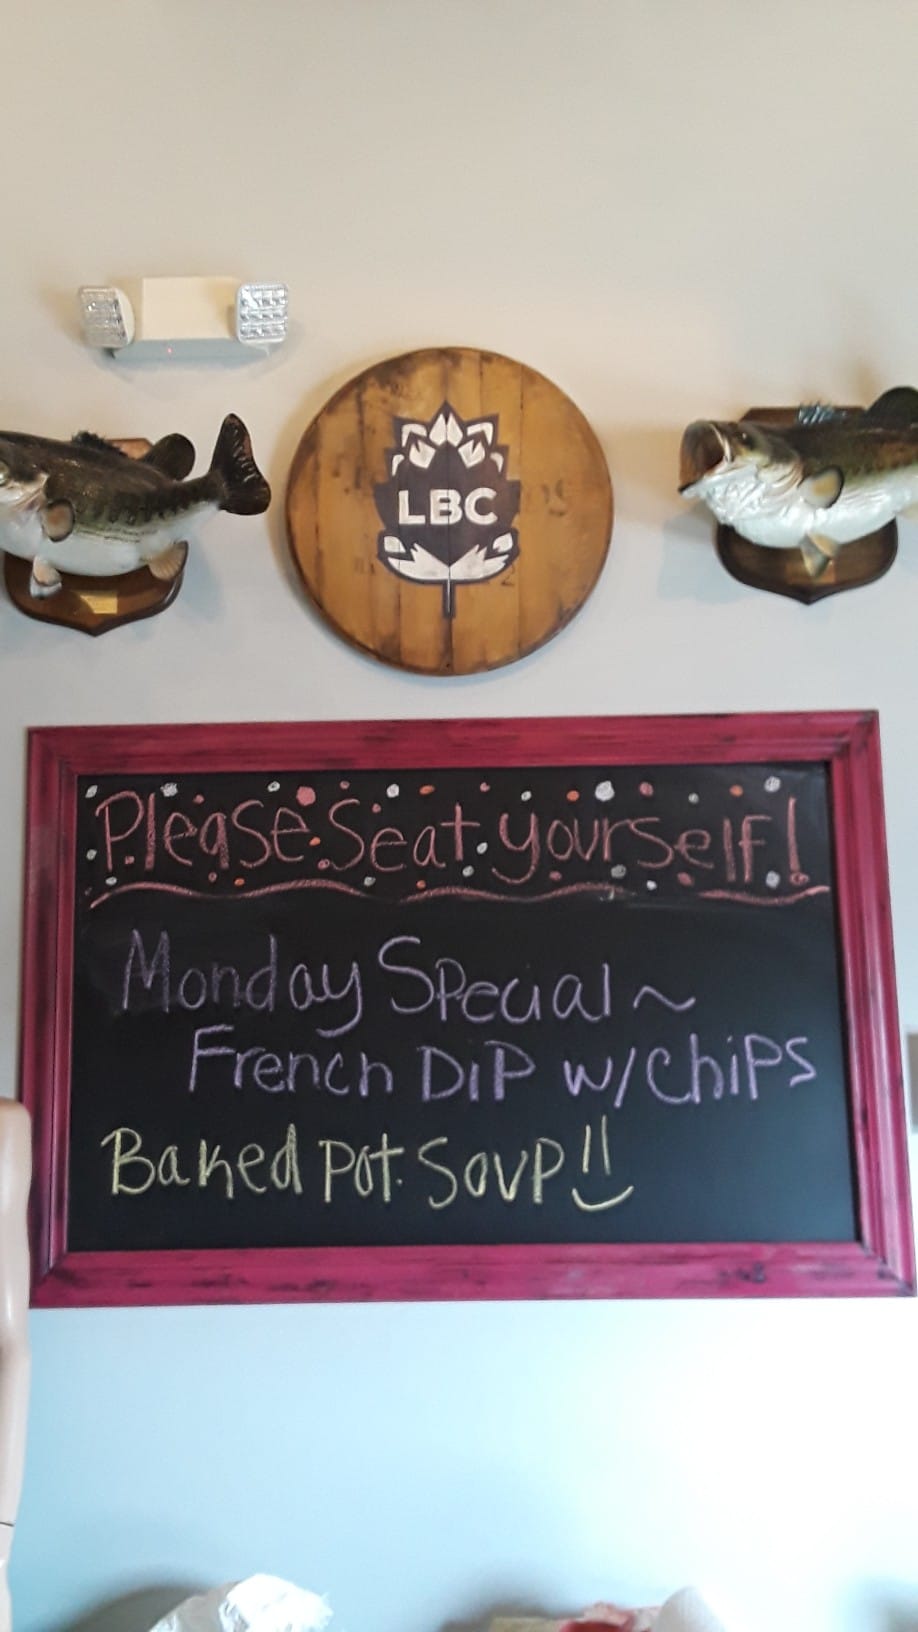 LBC
Please Seat yourself!
Monday Special ~
French Dip w/Chips
Baked Pot. Soup!!